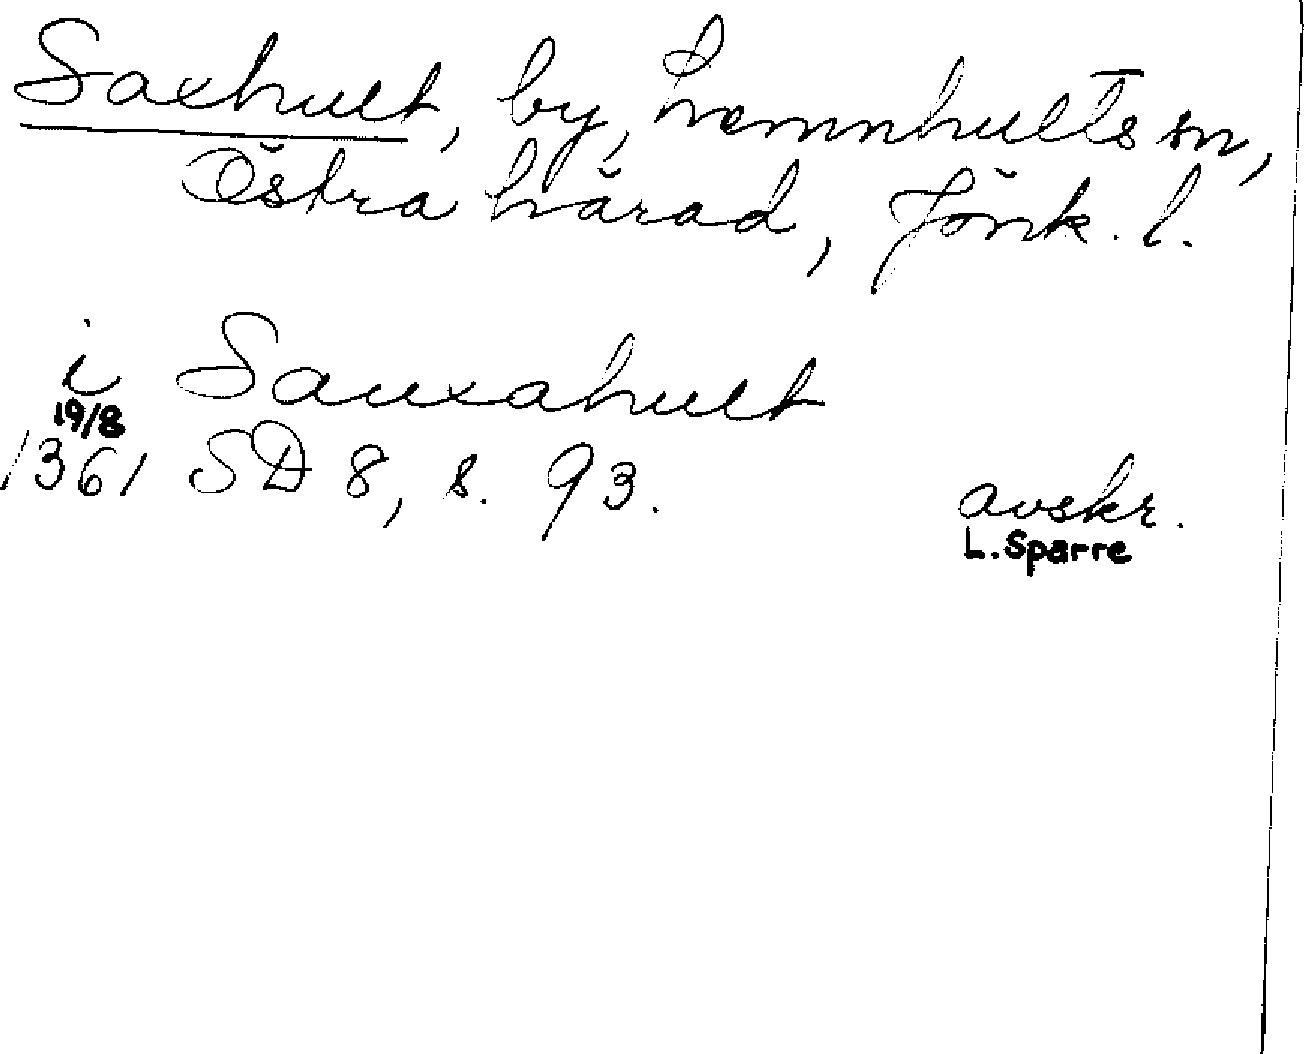 Saxhult, by, Lemnhults sn,
Östra härad, Jönk. l.
i Sauxahult
19/8
1361 SD 8, s. 93.
avskr.
L. Sparre